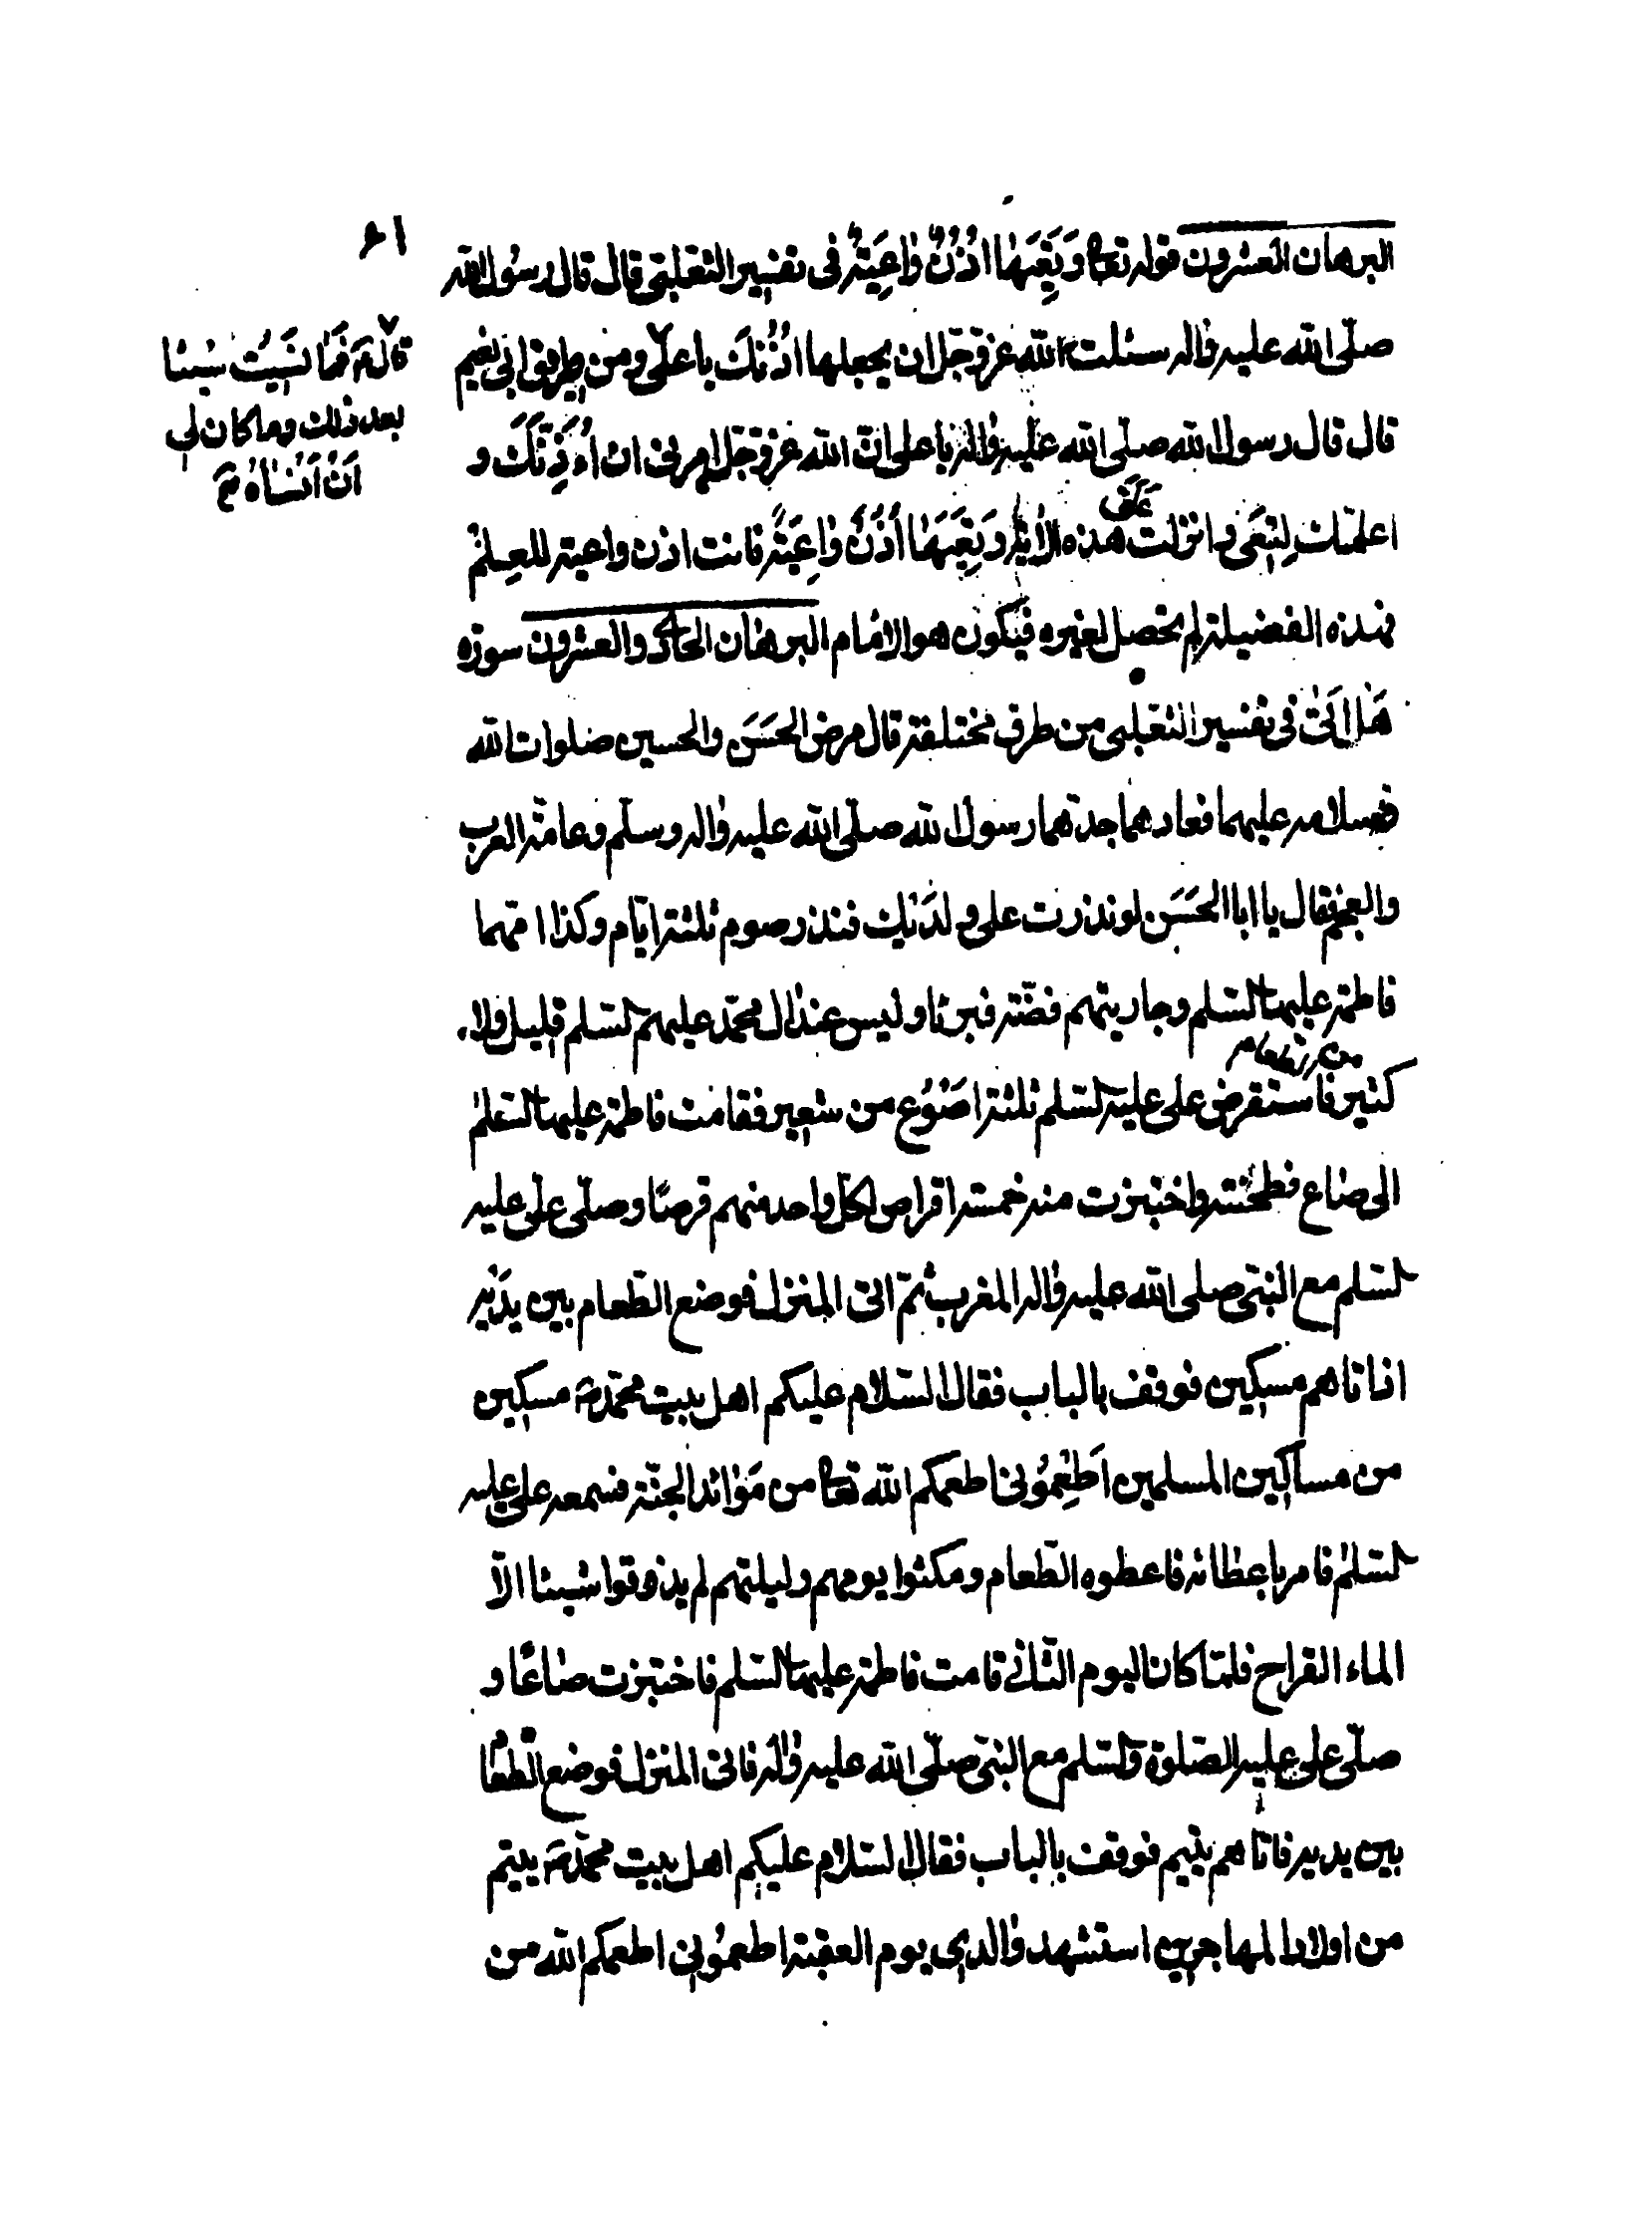 ٤١
البرهان العشرون قوله تعا وَتَعِيَهٰا اُذُنٌ وٰاعِيَةٌ فى تفسير الثعلبى قال قال رسول الله
صلّى الله عليه وٰاله سئلت الله عزّ وجّل ان يجعلها اذُنُكَ يا علىّ ومن طريق ابى نعيم
قال قال رسول الله صلّى الله عليه وٰاله يا على انّ الله عزّ وجّل امرنى ان اُدْنِيَكَ و
اعلّمك لِتَعَى وانزلت علىّ هذه الٰاية وَتَعِيَهٰا اُذُنٌ وٰاعِيَةٌ فانت اذن واعية للعِلم
فهذه الفضيلة لم تحصل لغيره فيكون هو الامام البرهان الحادى والعشرون سورة
هَل اَتىٰ فى تفسير الثعلبى من طرق مختلفة قال مرض الحَسَن والحسين صلوات الله
وسلامه عليهما فعادهما جدّهما رسول الله صلّى الله عليه وٰاله وسلّم وعامّة العرب
والعجم فقال يا ابا الحَسَن لو نذرت على ولدَيك فنذر صوم ثلثة ايّام وكذا امّهما
فاطمة عليها السّلم وجاريتهم فضّة فبرئا وليس عند اٰل محمّد عليهم السّلم قليل ولا
كثير من الطعام فاستقرض على عليه السّلم ثلثة اصْوُع من شعير فقامت فاطمة عليها السّلم
الى صاع فطحنته واختبزت منه خمسة اقراص لكلّ واحد منهم قرصًا وصلّى علىّ عليه
السّلم مع النبّى صلى الله عليه وٰاله المغرب ثمّ اتى المنزل فوضع الطّعام بين يدَيْه
اذ اتاهم مسكين فوقف بالباب فقال السّلام عليكم اهل بيت محمّد ص مسكين
من مساكين المسلمين اَطْعِمُونى اطعمكم الله تعا من مَوٰائد الجنّة فسمعه على عليه
السّلم فامر باعطائه فاعطوه الطّعام ومكثوا يومهم وليلتهم لم يذوقوا شيئا الّا
الماء القراح فلمّا كان اليوم الثّانى قامت فاطمة عليها السّلم فاختبزت صاعًا و
صلّى على عليه الصّلوة والسّلم مع النبّى صلّى الله عليه وٰاله فاتى المنزل فوضع الطّعام
بين يديه فاتاهم يتيم فوقف بالباب فقال السّلام عليكم اهل بيت محمّد ص يتيم
من اولاد المهاجرين استشهد وٰالدى يوم العقبة اطعمُونى اطعمكم الله من
قال ع فَمٰا نَسِيتُ شيئا
بعد ذلك وما كان لى
اَنْ اَنْسٰاهُ صح